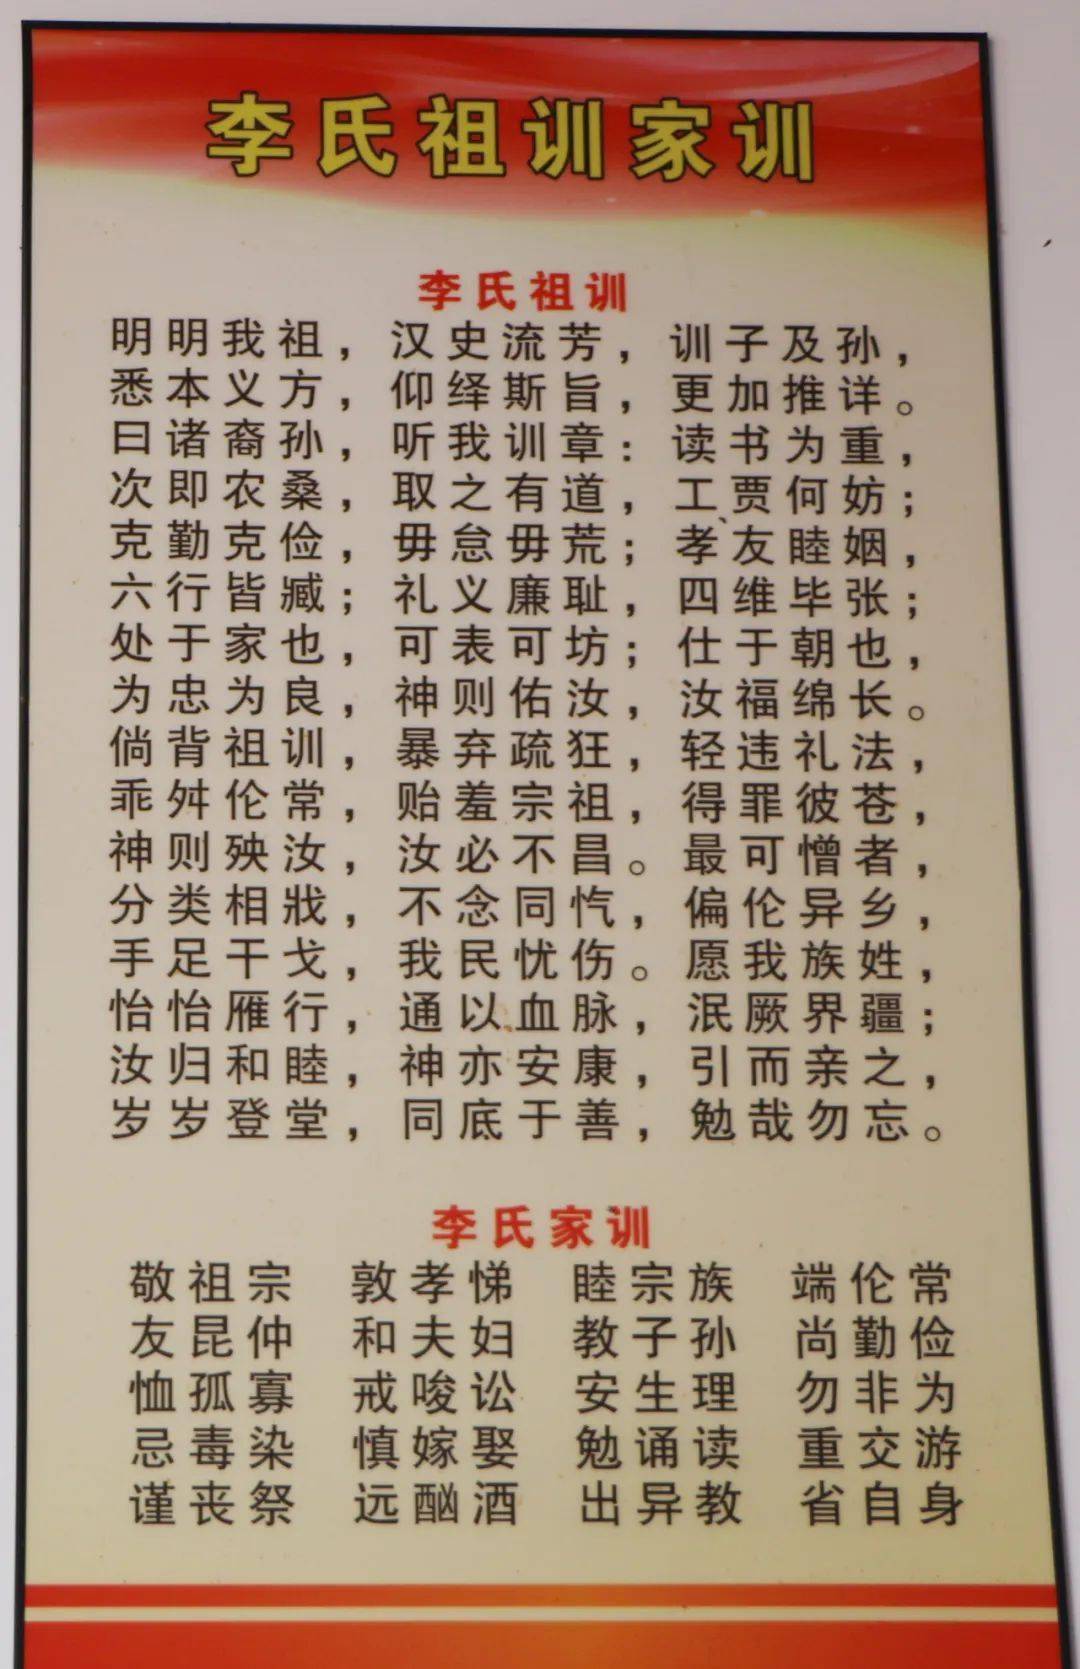 李氏祖训家训
李氏祖训
明明我祖，汉史流芳，训子及孙，
悉本义方，仰绎斯旨，更加推详。
曰诸裔孙，听我训章：读书为重，
次即农桑，取之有道，工贾何妨；
克勤克俭，毋怠毋荒；孝友睦姻，
六行皆臧；礼义廉耻，四维毕张；
处于家也，可表可坊；仕于朝也，
为忠为良，神则佑汝，汝福绵长。
倘背祖训，暴弃疏狂，轻违礼法，
乖舛伦常，贻羞宗祖，得罪彼苍，
神则殃汝，汝必不昌。最可憎者，
分类相戕，不念同忾，偏伦异乡，
手足干戈，我民忧伤。愿我族姓，
怡怡雁行，通以血脉，泯厥界疆；
汝归和睦，神亦安康，引而亲之，
岁岁登堂，同底于善，勉哉勿忘。
李氏家训
敬祖宗 敦孝悌 睦宗族 端伦常
友昆仲 和夫妇 教子孙 尚勤俭
恤孤寡 戒唆讼 安生理 勿非为
忌毒染 慎嫁娶 勉诵读 重交游
谨丧祭 远酗酒 出异教 省自身